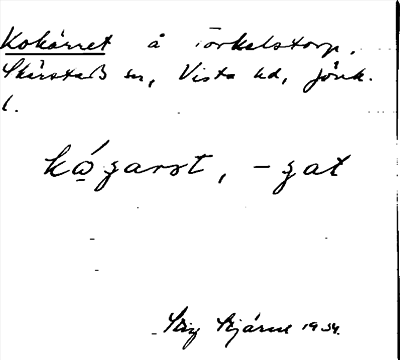 Kokärret å Torkelstorp,
Skärstad sn, Vista hd, Jönk.
l.
kǫ́ʒarət, -ʒat
Stig Stjärne 1934.